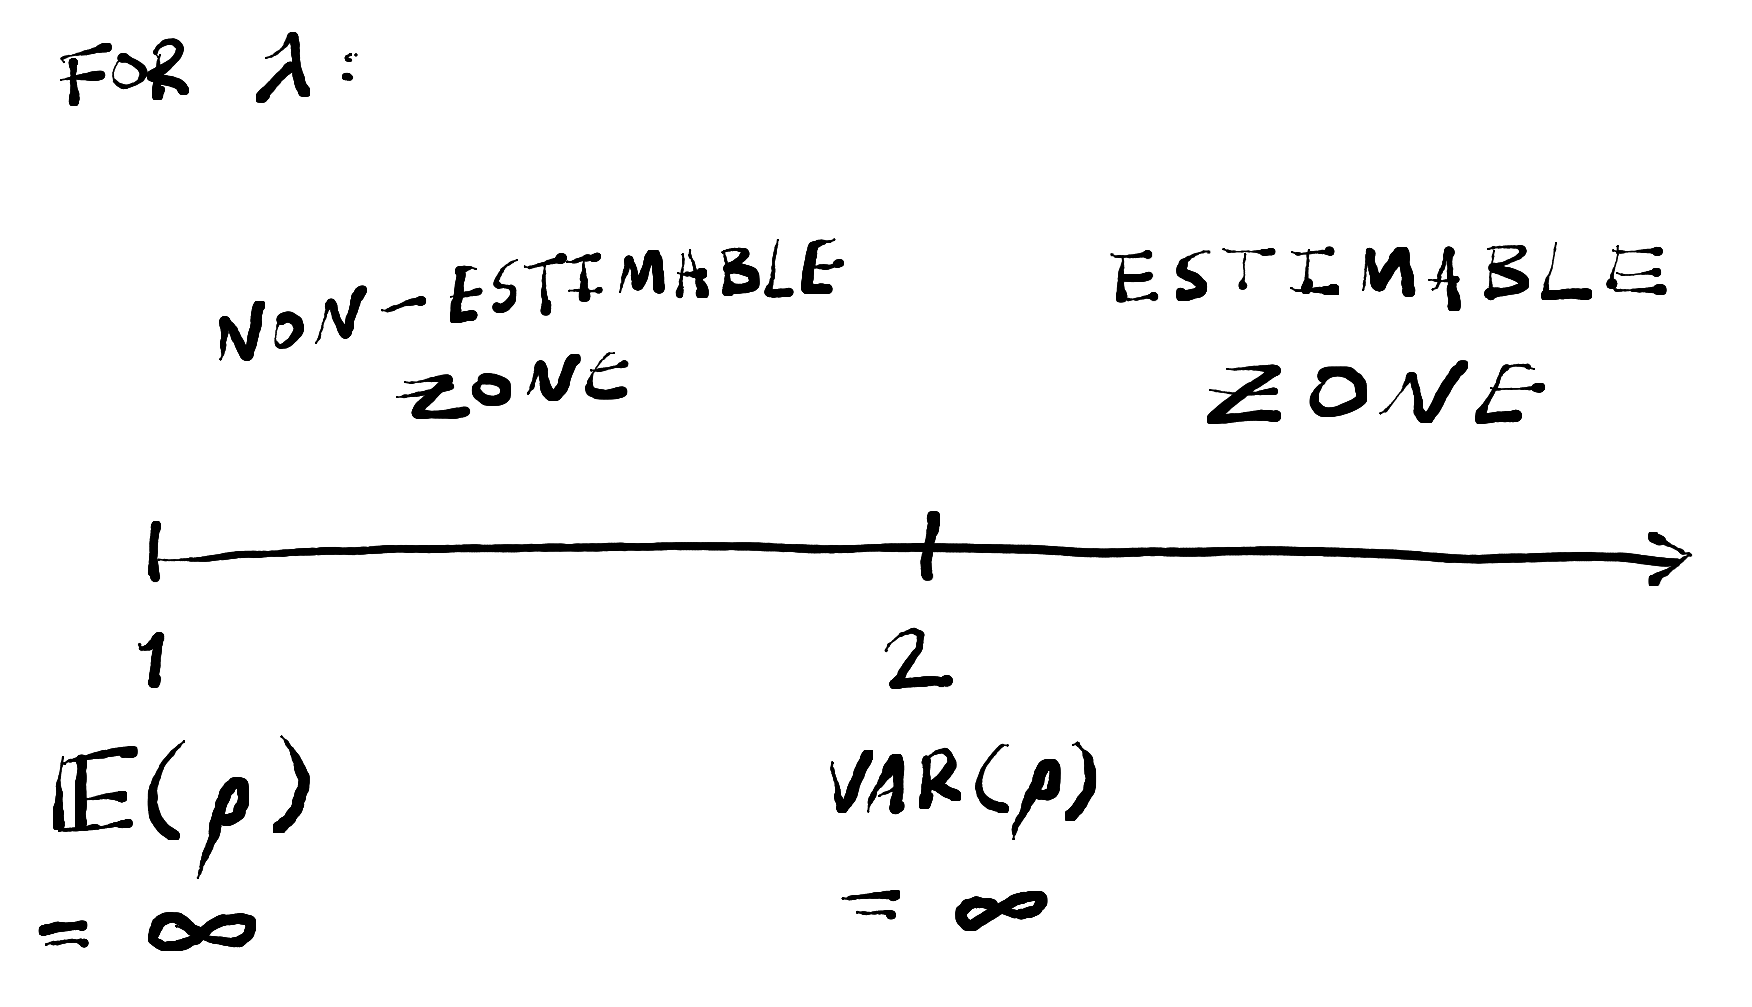 FOR λ:
NON-ESTIMABLE
ZONE
ESTIMABLE
ZONE
1
2
𝔼(ρ)
= ∞
VAR(ρ)
= ∞